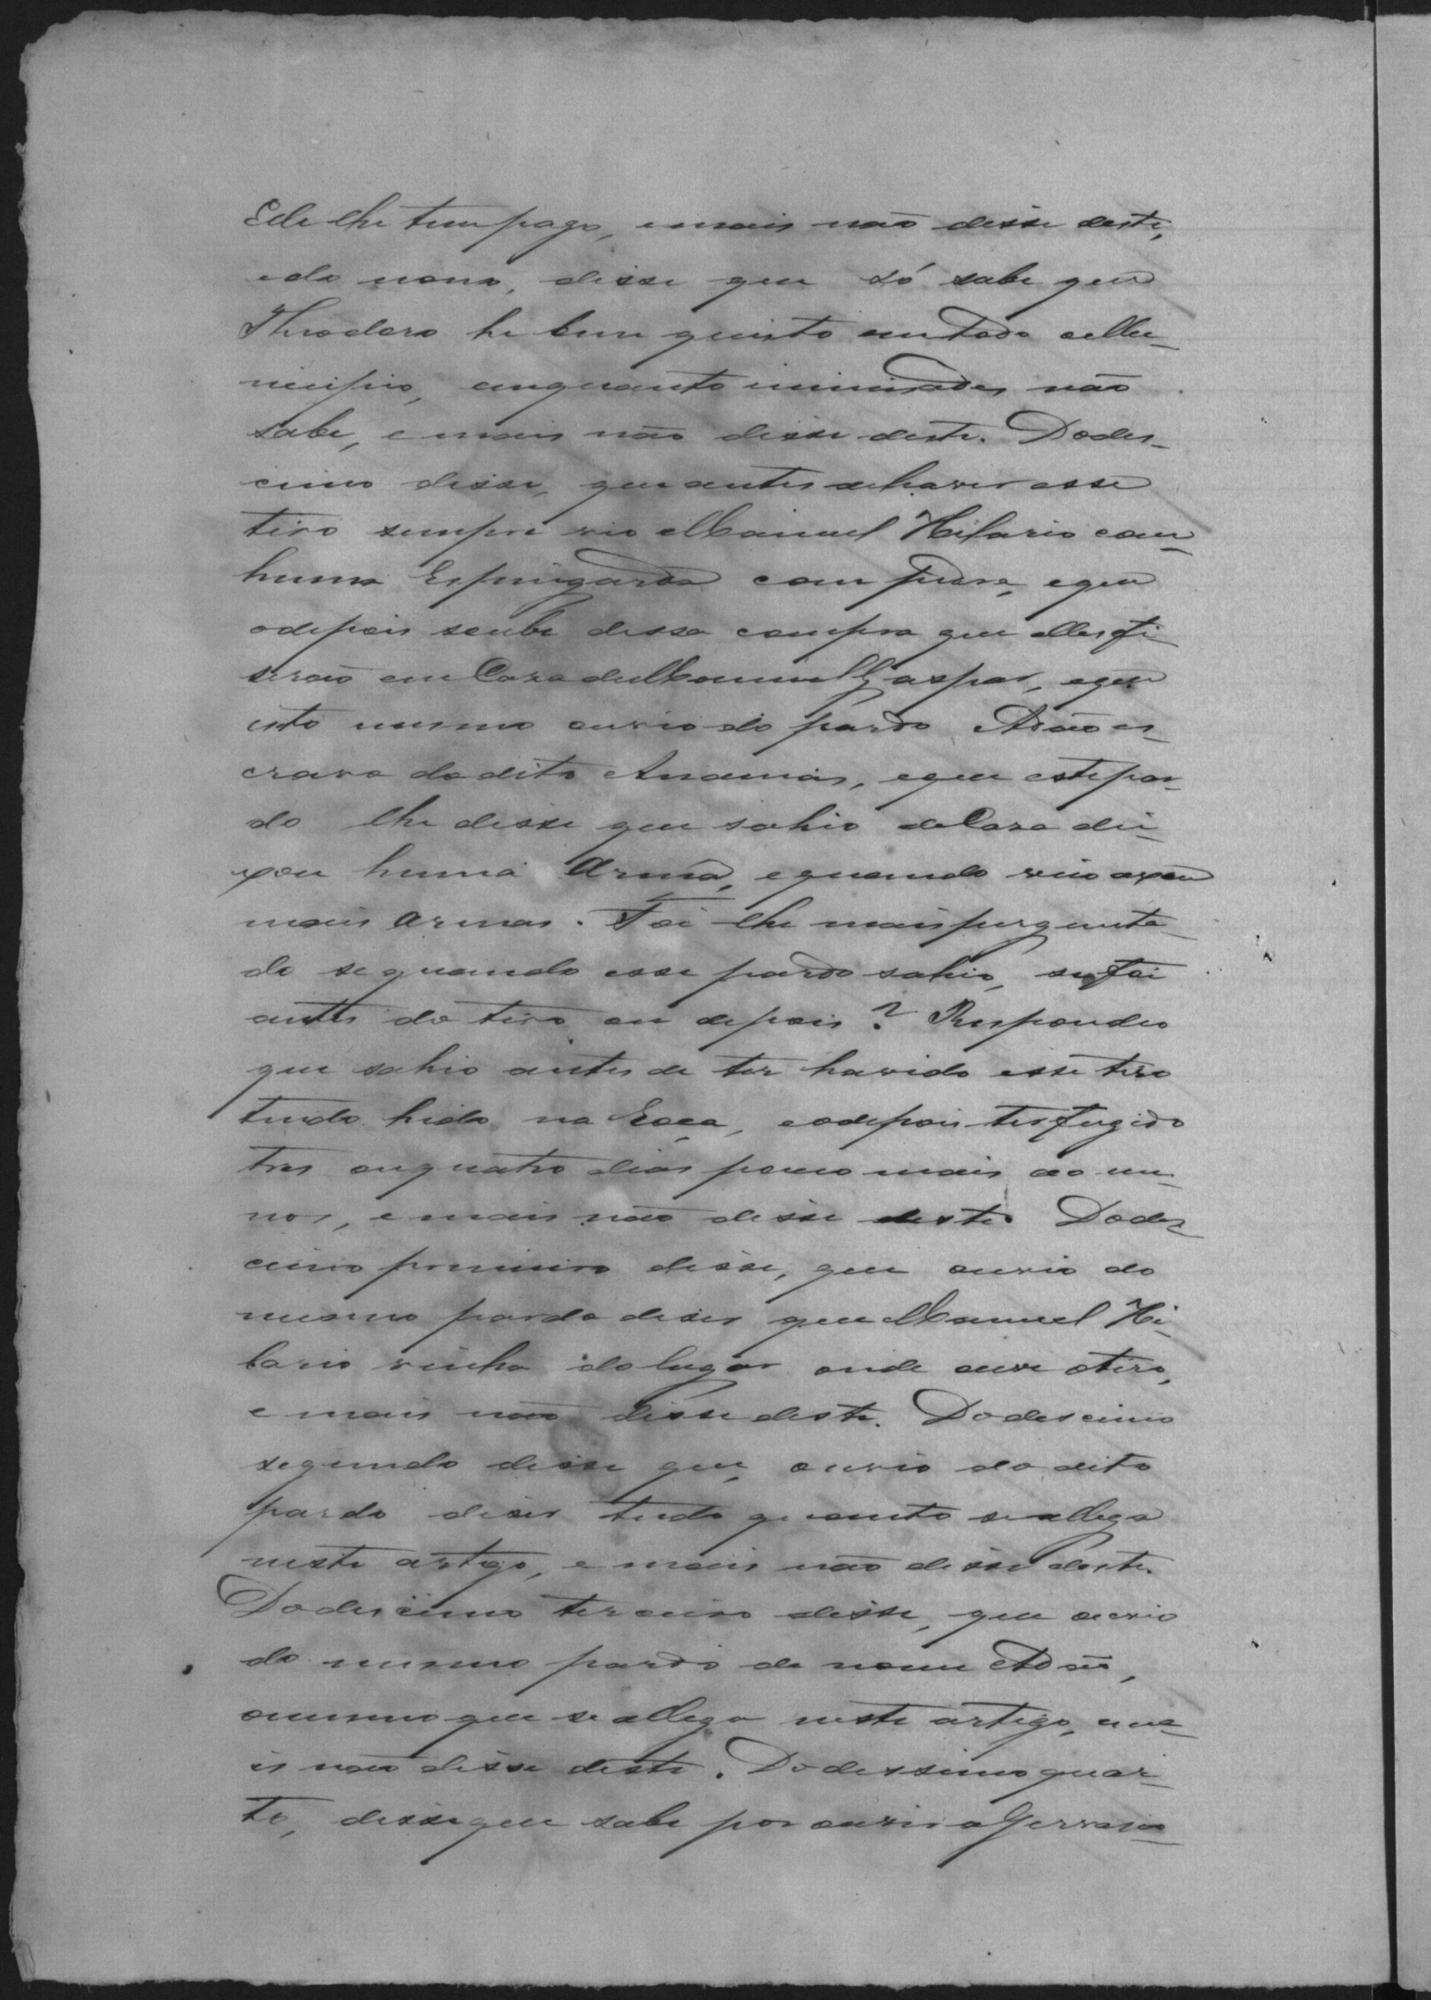 Ede lhe tem pago, emais não disse deste,
edo nono, disse que só sabe que
Theodoro he bem quisto em todo o Mu-
nicipio, enquanto inimisades não
sabe, e mais não disse deste. Dodes-
cimo disse, que antes de haver esse
tiro sempre vio Manuel Hilario com
huma Espingarda com pedra, e que
odepois soube dessa compra que elles fi-
serão em Casa de Manuel Gaspar, e que
isto mesmo ouvio do pardo Adão es-
cravo do dito Ananias, e que este par-
do lhe disse que sahio de Casa dei-
xou huma Arma, e quando veio axou
mais Armas. Foi lhe mais pergunta-
do se quando esse pardo sahio, se foi
antes do tiro ou depois? Respondeo
que sahio antes de ter havido esse tiro
tendo hido na Roça, e odepois ter fugido
tres ou quatro dias pouco mais ao me-
nos, e mais não disse deste. Dodes-
cimo primeiro disse, que ouvio do
mesmo pardo diser que Manuel Hi-
lario vinha do lugar onde ouve o tiro,
e mais não disse deste. Dodescimo
segundo disse que, ouvio do dito
pardo diser tudo quanto se allega
neste artigo, e mais não disse deste.
Dodescimo terceiro disse, que ouvio
do mesmo pardo de nome Adão,
omesmo que se allega neste artigo, e ma-
is não disse deste. Dodessimo quar-
to, disse que sabe por ouvir a Gervasio